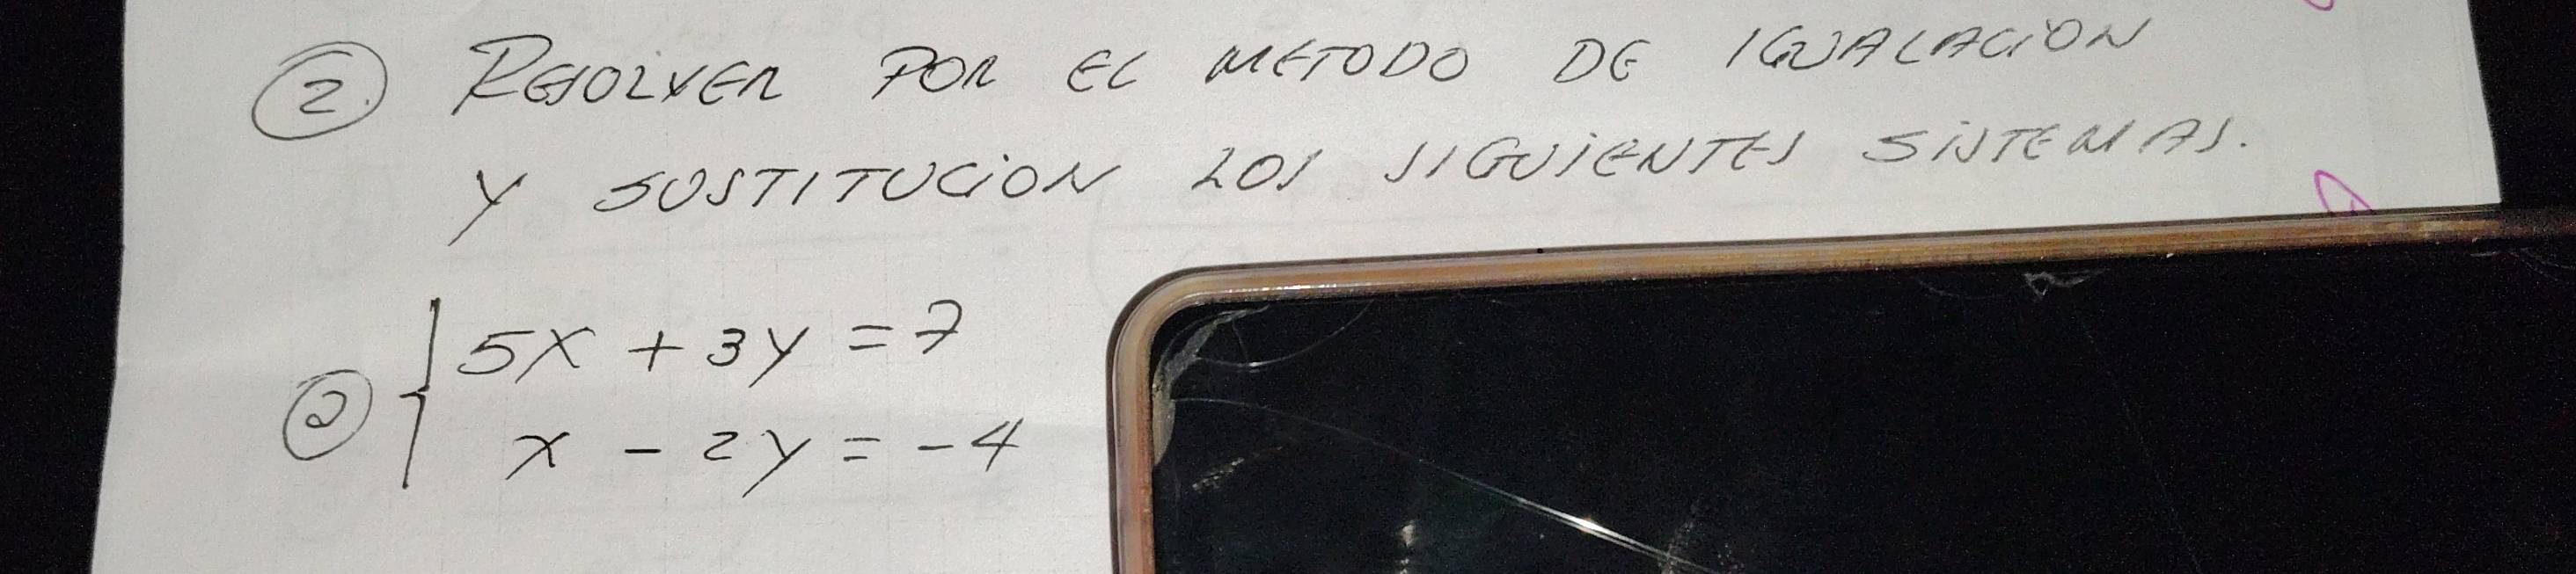 2. RESOLVER POR EL METODO DE IGUALACION
Y SUSTITUCION LOS SIGUIENTES SISTEMAS.
a { 5x + 3y = 7
x - 2y = -4